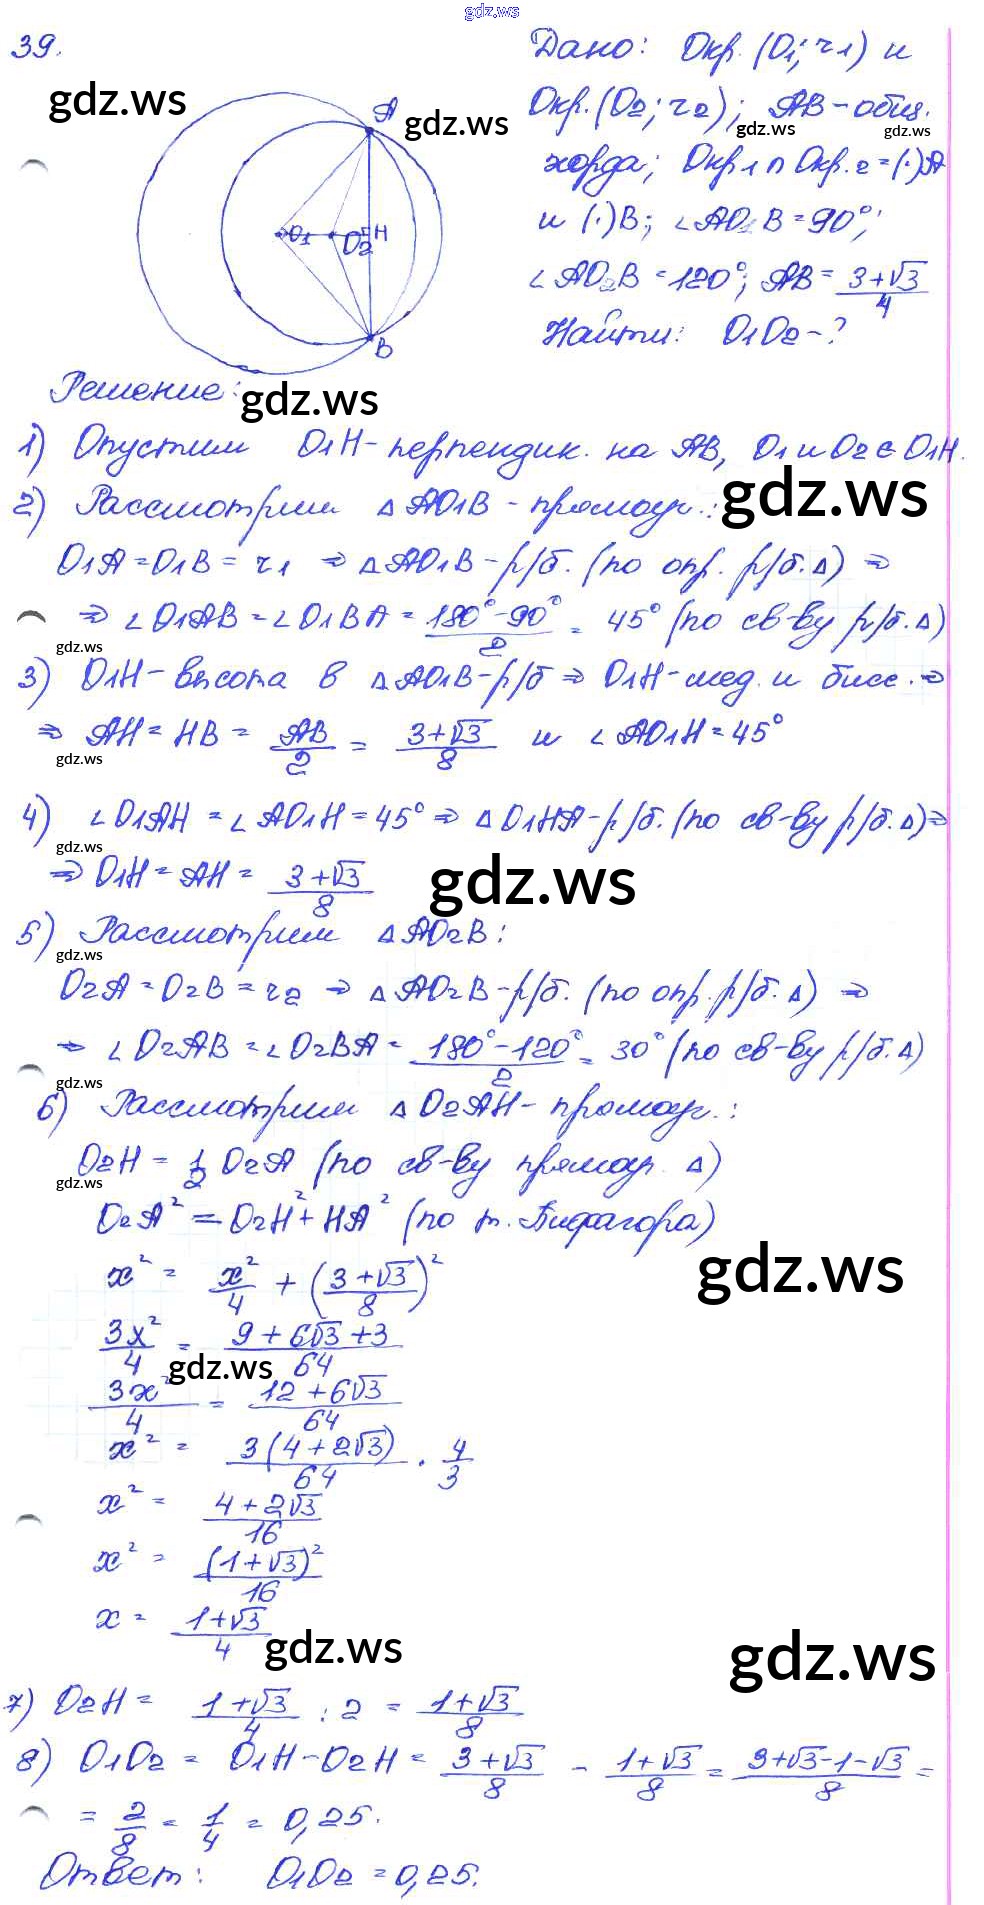 gdz.ws
39.
Дано: Окр.(O1; r1) и
gdz.ws
Окр.(O2; r2); AB - общ.
gdz.ws
gdz.ws
gdz.ws
хорда; Окр.1 ∩ Окр.2 = (·)A
и (·)B; ∠AO1B = 90°;
∠AO2B = 120°; AB = (3+√3)/4
Найти: O1O2 - ?
A
O1
O2
H
B
Решение:
gdz.ws
1) Опустим O1H - перпендик. на AB, O1 и O2 ∈ O1H.
2) Рассмотрим △AO1B - прямоуг.:
gdz.ws
O1A = O1B = r1 ⇒ △AO1B - р/б. (по опр. р/б. △) ⇒
⇒ ∠O1AB = ∠O1BA = (180° - 90°)/2 = 45° (по св-ву р/б. △)
gdz.ws
3) O1H - высота в △AO1B - р/б ⇒ O1H - мед. и бисс. ⇒
⇒ AH = HB = AB/2 = (3+√3)/8 и ∠AO1H = 45°
gdz.ws
4) ∠O1AH = ∠AO1H = 45° ⇒ △O1HA - р/б. (по св-ву р/б. △) ⇒
gdz.ws
⇒ O1H = AH = (3+√3)/8
gdz.ws
5) Рассмотрим △AO2B:
gdz.ws
O2A = O2B = r2 ⇒ △AO2B - р/б. (по опр. р/б. △) ⇒
⇒ ∠O2AB = ∠O2BA = (180° - 120°)/2 = 30° (по св-ву р/б. △)
gdz.ws
6) Рассмотрим △O2AH - прямоуг.:
O2H = 1/2 O2A (по св-ву прямоуг. △)
gdz.ws
O2A² = O2H² + HA² (по т. Пифагора)
gdz.ws
x² = x²/4 + ((3+√3)/8)²
3x²/4 = (9+6√3+3)/64
gdz.ws
3x²/4 = (12+6√3)/64
x² = 3(4+2√3)/64 · 4/3
x² = (4+2√3)/16
x² = (1+√3)²/16
x = (1+√3)/4
gdz.ws
gdz.ws
7) O2H = (1+√3)/4 : 2 = (1+√3)/8
8) O1O2 = O1H - O2H = (3+√3)/8 - (1+√3)/8 = (3+√3-1-√3)/8 =
= 2/8 = 1/4 = 0,25.
Ответ: O1O2 = 0,25.